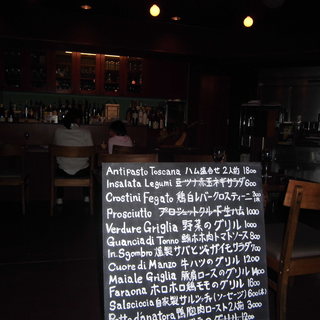 Antipasto Toscana ハム盛合せ 2人前 1800
Insalata Legumi 豆ツナ赤玉ネギサラダ 600
Crostini Fegato 鶏白レバークロスティーニ
Prosciutto プロシュットクルード生ハム 1000
Verdure Griglia 野菜のグリル 1000
Guancia di Tonno 鮪ホホ肉トマトソース 800
In.Sgombro 燻製サバとジャガイモサラダ 700
Cuore di Manzo 牛ハツのグリル 1200
Maiale Griglia 豚肩ロースのグリル
Faraona ホロホロ鶏モモのグリル
Salsciccia 自家製サルシッチャ(ソーセージ)
鴨胸肉ロースト2人前